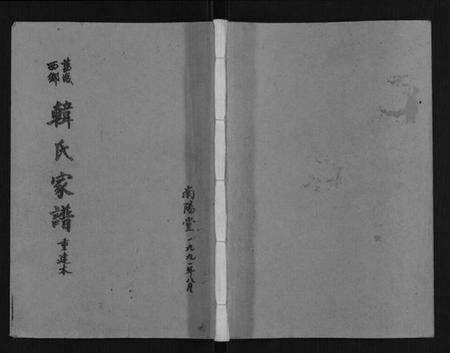 西鄉
韓氏家譜
重建本
南陽堂
一九九一年八月